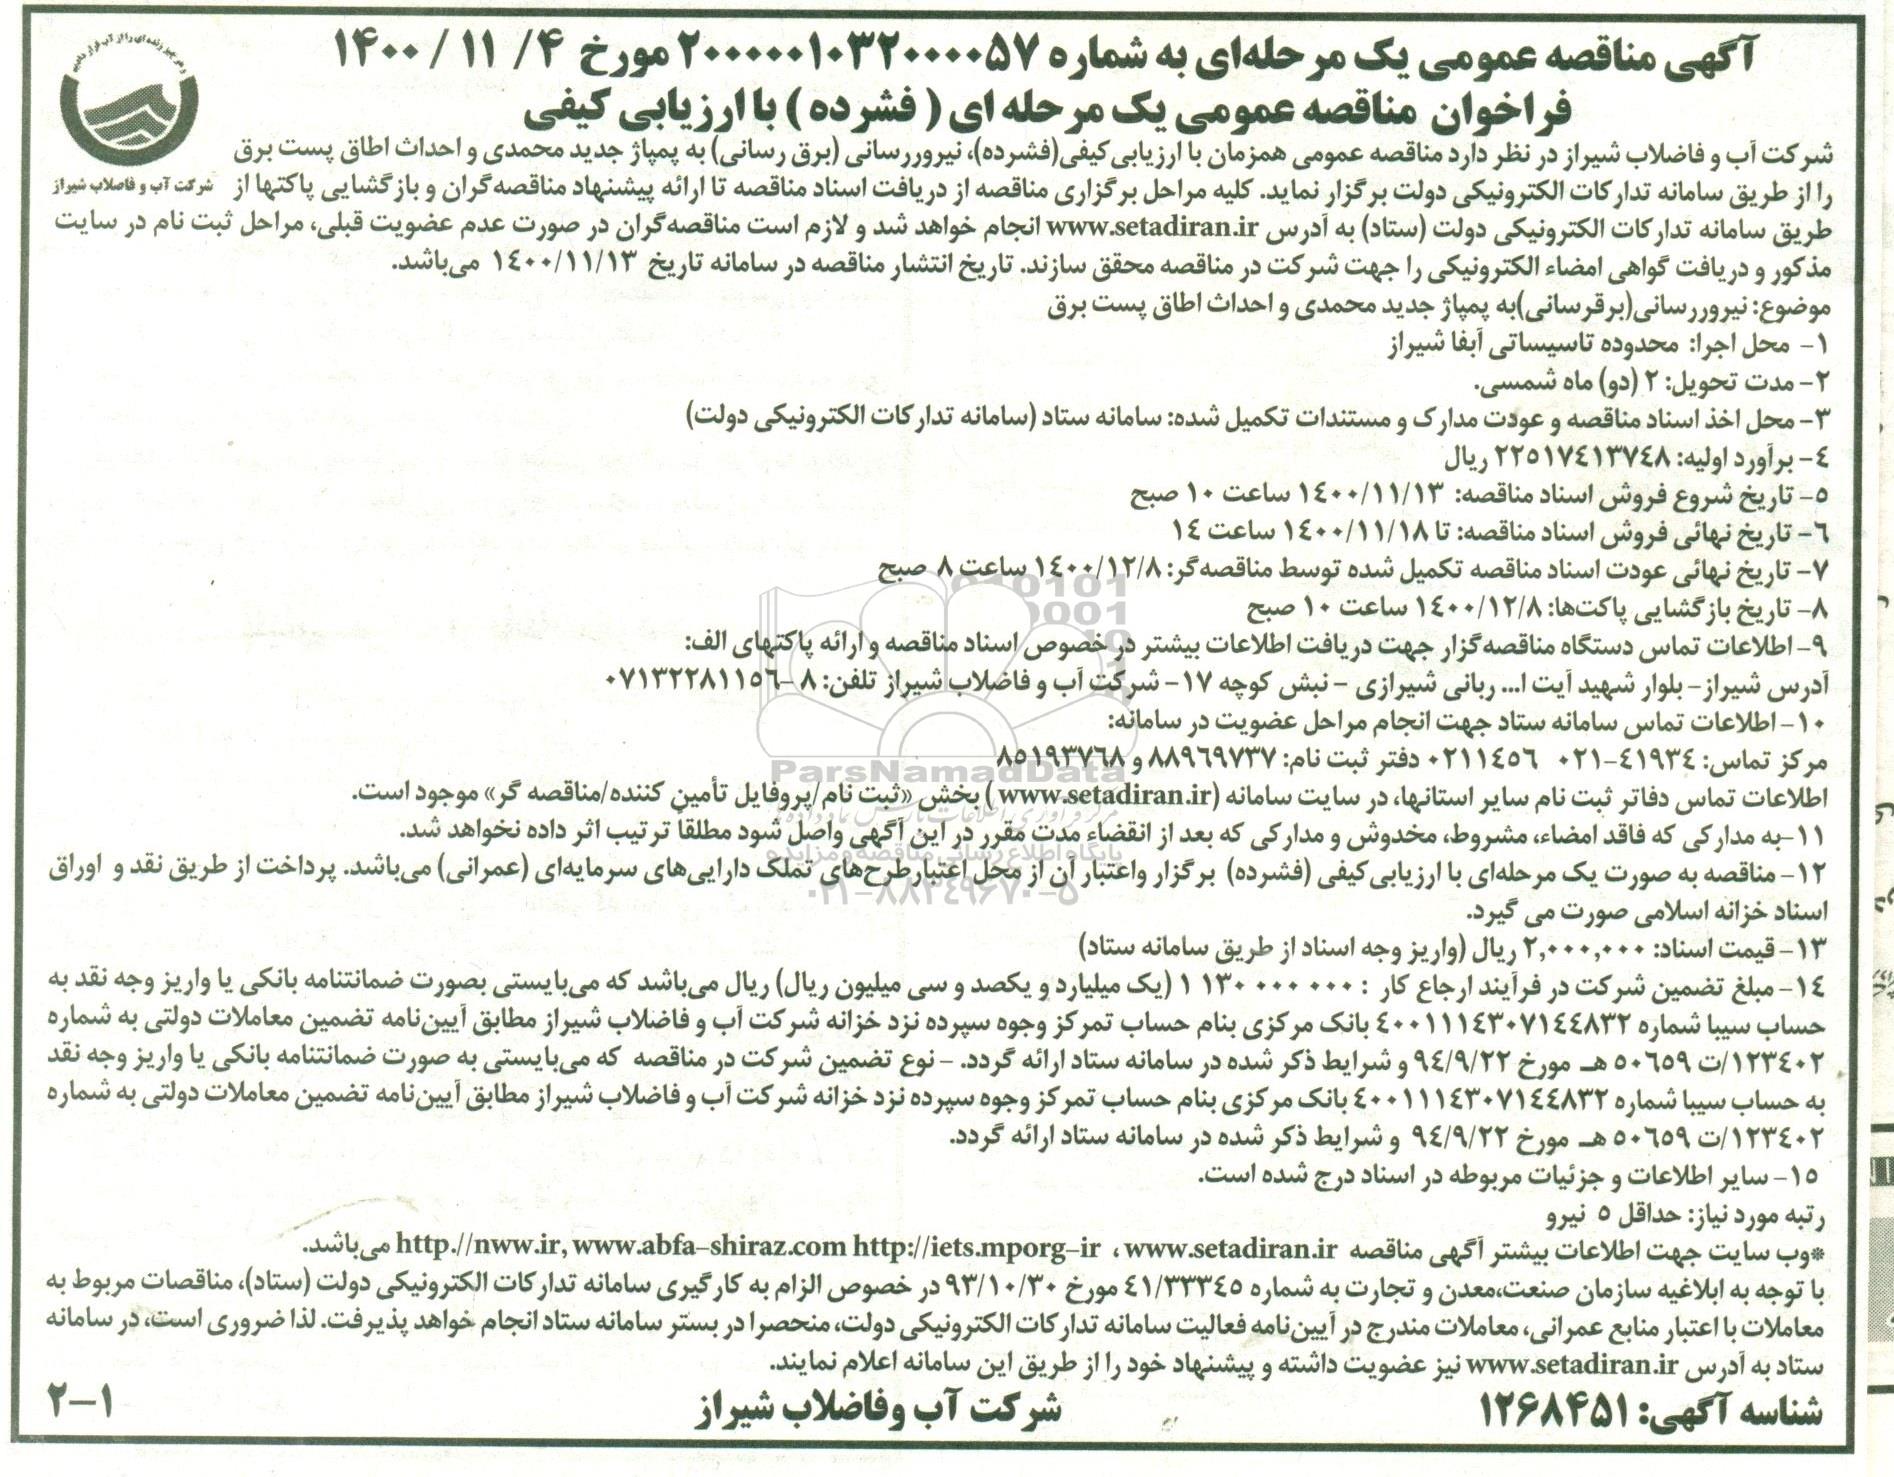 آگهی مناقصه عمومی یک مرحله‌ای به شماره ۲۰۰۰۰۰۱۰۳۲۰۰۰۰۵۷ مورخ ۴/ ۱۱ / ۱۴۰۰
فراخوان مناقصه عمومی یک مرحله ای ( فشرده ) با ارزیابی کیفی
شرکت آب و فاضلاب شیراز
شرکت آب و فاضلاب شیراز در نظر دارد مناقصه عمومی همزمان با ارزیابی کیفی(فشرده)، نیروررسانی (برق رسانی) به پمپاژ جدید محمدی و احداث اطاق پست برق
را از طریق سامانه تدارکات الکترونیکی دولت برگزار نماید. کلیه مراحل برگزاری مناقصه از دریافت اسناد مناقصه تا ارائه پیشنهاد مناقصه‌گران و بازگشایی پاکتها از
طریق سامانه تدارکات الکترونیکی دولت (ستاد) به آدرس www.setadiran.ir انجام خواهد شد و لازم است مناقصه‌گران در صورت عدم عضویت قبلی، مراحل ثبت نام در سایت
مذکور و دریافت گواهی امضاء الکترونیکی را جهت شرکت در مناقصه محقق سازند. تاریخ انتشار مناقصه در سامانه تاریخ ۱۴۰۰/۱۱/۱۳ می‌باشد.
موضوع: نیروررسانی(برقرسانی)به پمپاژ جدید محمدی و احداث اطاق پست برق
۱- محل اجرا: محدوده تاسیساتی آبفا شیراز
۲- مدت تحویل: ۲ (دو) ماه شمسی.
۳- محل اخذ اسناد مناقصه و عودت مدارک و مستندات تکمیل شده: سامانه ستاد (سامانه تدارکات الکترونیکی دولت)
۴- برآورد اولیه: ۲۲۵۱۷۴۱۳۷۴۸ ریال
۵- تاریخ شروع فروش اسناد مناقصه: ۱۴۰۰/۱۱/۱۳ ساعت ۱۰ صبح
۶- تاریخ نهائی فروش اسناد مناقصه: تا ۱۴۰۰/۱۱/۱۸ ساعت ۱۴
۷- تاریخ نهائی عودت اسناد مناقصه تکمیل شده توسط مناقصه‌گر: ۱۴۰۰/۱۲/۸ ساعت ۸ صبح
۸- تاریخ بازگشایی پاکت‌ها: ۱۴۰۰/۱۲/۸ ساعت ۱۰ صبح
۹- اطلاعات تماس دستگاه مناقصه‌گزار جهت دریافت اطلاعات بیشتر در خصوص اسناد مناقصه و ارائه پاکتهای الف:
آدرس شیراز- بلوار شهید آیت ا... ربانی شیرازی - نبش کوچه ۱۷- شرکت آب و فاضلاب شیراز تلفن: ۸ -۰۷۱۳۲۲۸۱۱۵۶
۱۰- اطلاعات تماس سامانه ستاد جهت انجام مراحل عضویت در سامانه:
مرکز تماس: ۴۱۹۳۴-۰۲۱ ۰۲۱۱۴۵۶ دفتر ثبت نام: ۸۸۹۶۹۷۳۷ و ۸۵۱۹۳۷۶۸
ParsNamadData
اطلاعات تماس دفاتر ثبت نام سایر استانها، در سایت سامانه (www.setadiran.ir ) بخش «ثبت نام/پروفایل تأمین کننده/مناقصه گر» موجود است.
مرکز فرآوری اطلاعات پارس نماد داده ها
۱۱-به مدارکی که فاقد امضاء، مشروط، مخدوش و مدارکی که بعد از انقضاء مدت مقرر در این آگهی واصل شود مطلقاً ترتیب اثر داده نخواهد شد.
پایگاه اطلاع رسانی مناقصه و مزایده
۱۲- مناقصه به صورت یک مرحله‌ای با ارزیابی کیفی (فشرده) برگزار واعتبار آن از محل اعتبارطرح‌های تملک دارایی‌های سرمایه‌ای (عمرانی) می‌باشد. پرداخت از طریق نقد و اوراق
۰۲۱-۸۸۳۴۹۶۷۰-۵
اسناد خزانه اسلامی صورت می گیرد.
۱۳- قیمت اسناد: ۲,۰۰۰,۰۰۰ ریال (واریز وجه اسناد از طریق سامانه ستاد)
۱۴- مبلغ تضمین شرکت در فرآیند ارجاع کار : ۰۰۰ ۰۰۰ ۱۳۰ ۱ (یک میلیارد و یکصد و سی میلیون ریال) ریال می‌باشد که می‌بایستی بصورت ضمانتنامه بانکی یا واریز وجه نقد به
حساب سیبا شماره ۴۰۰۱۱۱۴۳۰۷۱۴۴۸۳۲ بانک مرکزی بنام حساب تمرکز وجوه سپرده نزد خزانه شرکت آب و فاضلاب شیراز مطابق آیین‌نامه تضمین معاملات دولتی به شماره
۱۲۳۴۰۲/ت ۵۰۶۵۹ هـ مورخ ۹۴/۹/۲۲ و شرایط ذکر شده در سامانه ستاد ارائه گردد. - نوع تضمین شرکت در مناقصه که می‌بایستی به صورت ضمانتنامه بانکی یا واریز وجه نقد
به حساب سیبا شماره ۴۰۰۱۱۱۴۳۰۷۱۴۴۸۳۲ بانک مرکزی بنام حساب تمرکز وجوه سپرده نزد خزانه شرکت آب و فاضلاب شیراز مطابق آیین‌نامه تضمین معاملات دولتی به شماره
۱۲۳۴۰۲/ت ۵۰۶۵۹ هـ مورخ ۹۴/۹/۲۲ و شرایط ذکر شده در سامانه ستاد ارائه گردد.
۱۵- سایر اطلاعات و جزئیات مربوطه در اسناد درج شده است.
رتبه مورد نیاز: حداقل ۵ نیرو
*وب سایت جهت اطلاعات بیشتر آگهی مناقصه http.//nww.ir, www.abfa-shiraz.com http://iets.mporg-ir ، www.setadiran.ir می‌باشد.
با توجه به ابلاغیه سازمان صنعت،معدن و تجارت به شماره ۴۱/۳۳۳۴۵ مورخ ۹۳/۱۰/۳۰ در خصوص الزام به کارگیری سامانه تدارکات الکترونیکی دولت (ستاد)، مناقصات مربوط به
معاملات با اعتبار منابع عمرانی، معاملات مندرج در آیین‌نامه فعالیت سامانه تدارکات الکترونیکی دولت، منحصرا در بستر سامانه ستاد انجام خواهد پذیرفت. لذا ضروری است، در سامانه
ستاد به آدرس www.setadiran.ir نیز عضویت داشته و پیشنهاد خود را از طریق این سامانه اعلام نمایند.
شناسه آگهی: ۱۲۶۸۴۵۱
شرکت آب وفاضلاب شیراز
۲-۱